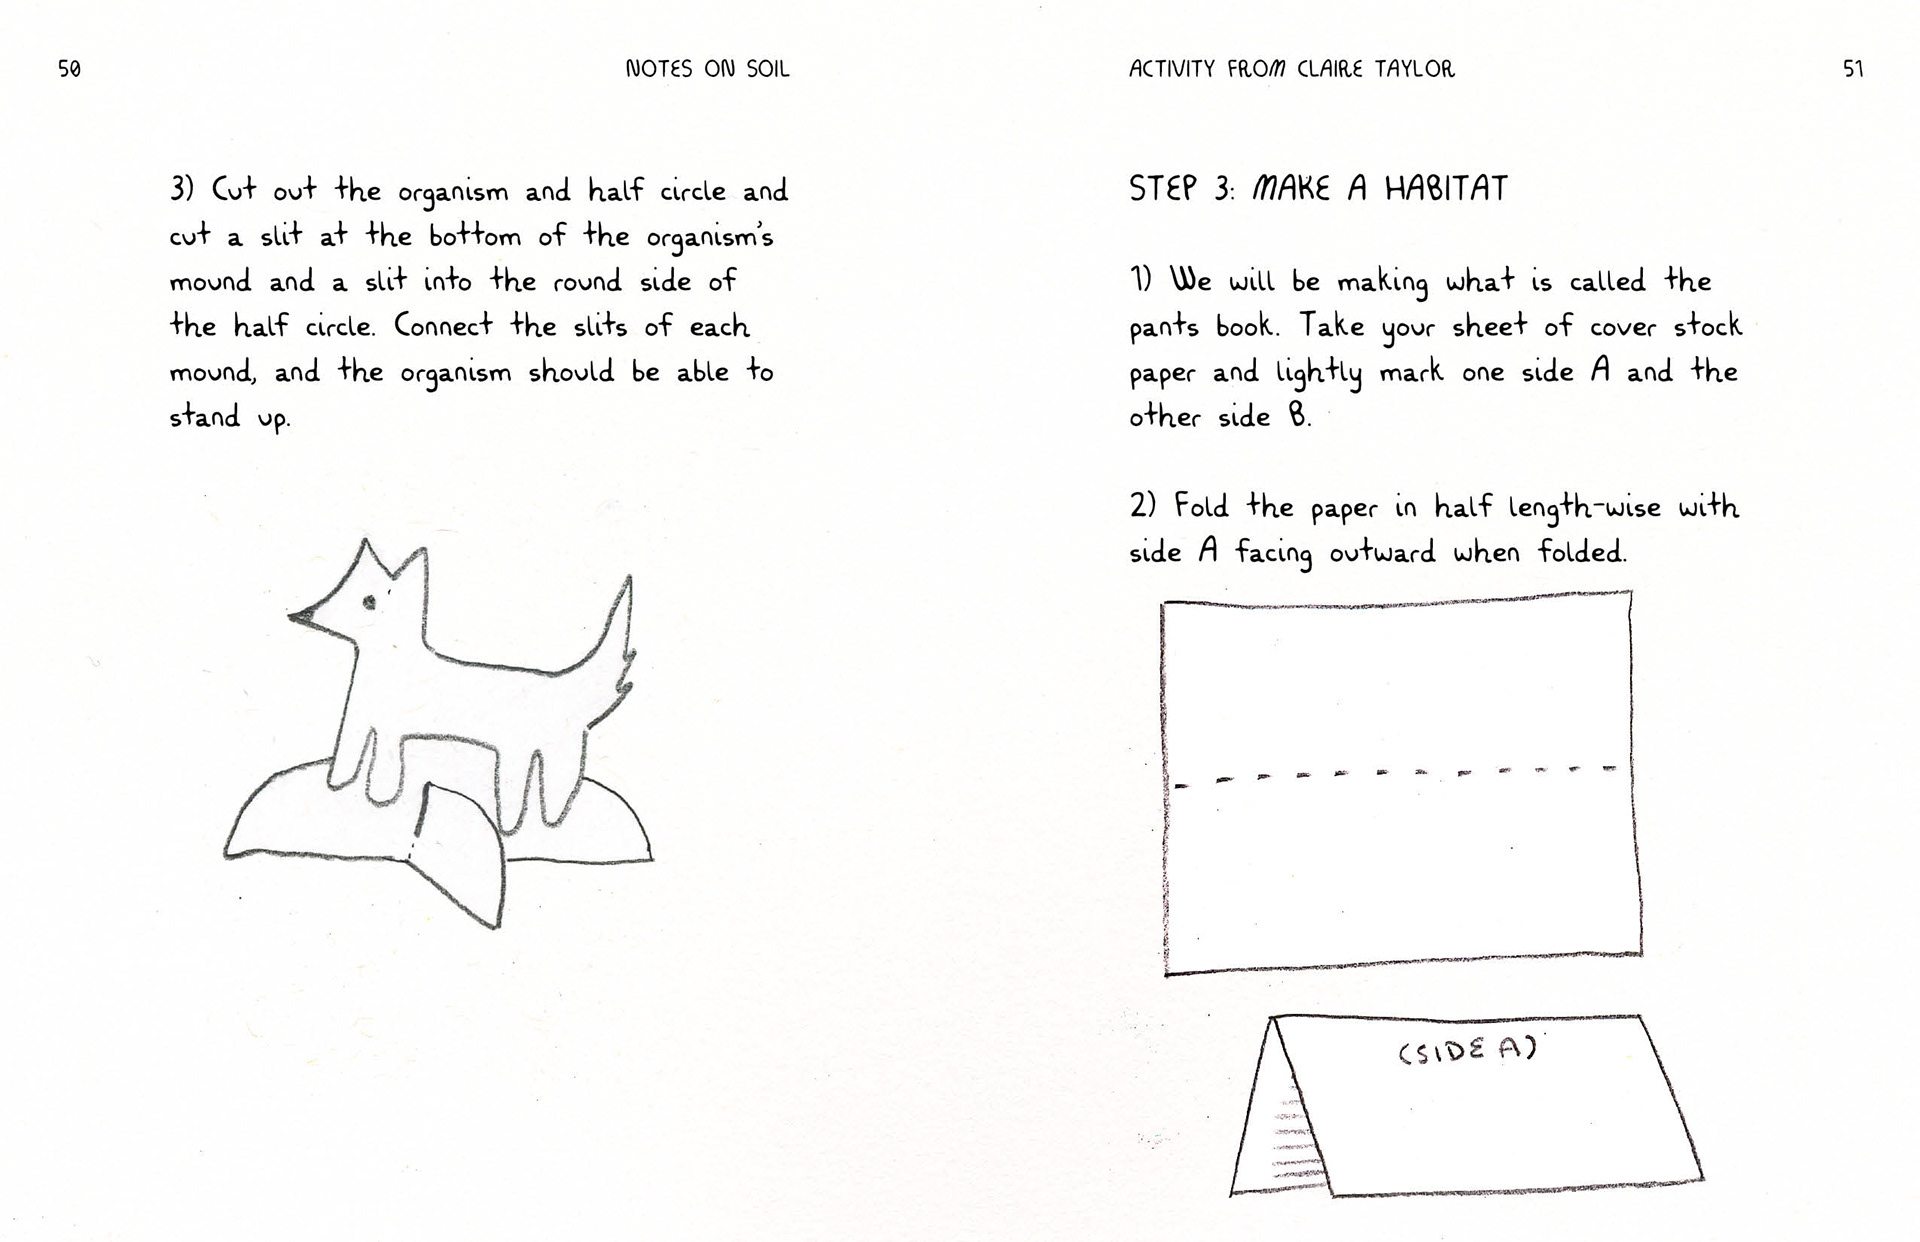 50
NOTES ON SOIL
3) Cut out the organism and half circle and
cut a slit at the bottom of the organism's
mound and a slit into the round side of
the half circle. Connect the slits of each
mound, and the organism should be able to
stand up.
ACTIVITY FROM CLAIRE TAYLOR
51
STEP 3: MAKE A HABITAT
1) We will be making what is called the
pants book. Take your sheet of cover stock
paper and lightly mark one side A and the
other side B.
2) Fold the paper in half length-wise with
side A facing outward when folded.
(SIDE A)